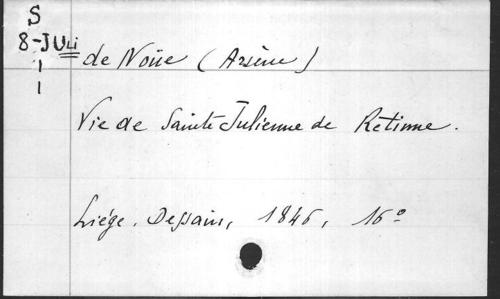 S
8-JULi
1
1
de Noüe (Arsène)
Vie de Sainte Julienne de Rétinne.
Liége. Dessain, 1846, 16°